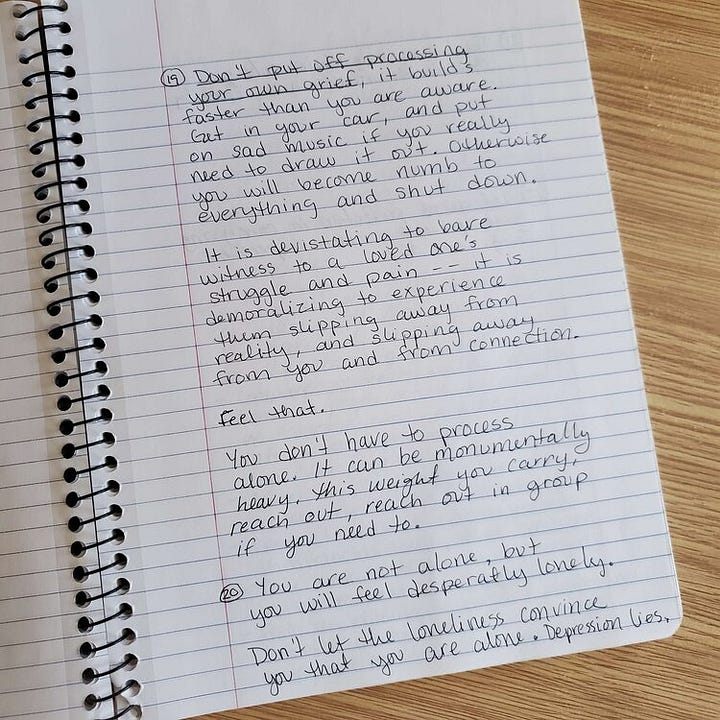 ⑲ Don't put off processing
your own grief, it build's
faster than you are aware.
Get in your car, and put
on sad music if you really
need to draw it out. Otherwise
you will become numb to
everything and shut down.
It is devistating to bare
witness to a loved one's
struggle and pain -- it is
demoralizing to experience
them slipping away from
reality, and slipping away
from you and from connection.
Feel that.
You don't have to process
alone. It can be monumentally
heavy, this weight you carry,
reach out, reach out in group
if you need to.
⑳ You are not alone, but
you will feel desperatly lonely.
Don't let the loneliness convince
you that you are alone. Depression lies.